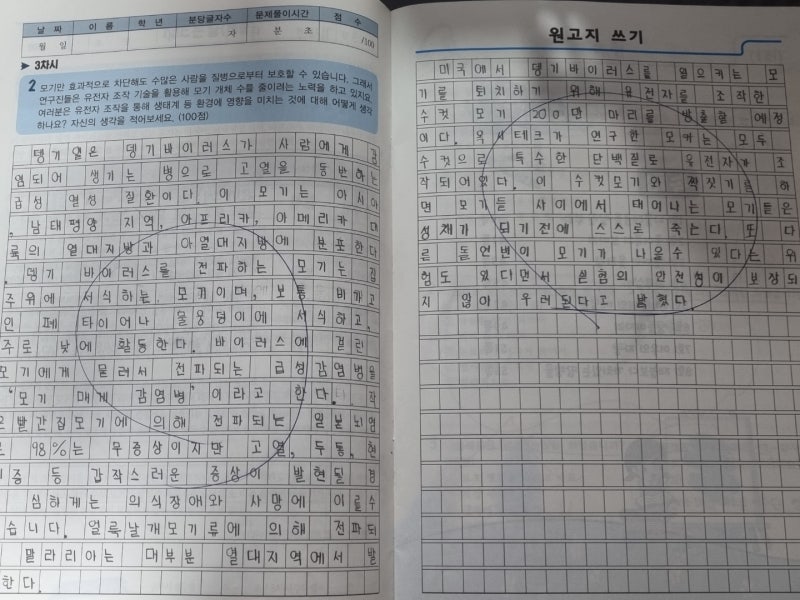 날 짜 이 름 학 년 분당글자수 문제풀이시간 점 수
월 일 자 분 초 /100
▶ 3차시
2 모기만 효과적으로 차단해도 수많은 사람을 질병으로부터 보호할 수 있습니다. 그래서
연구진들은 유전자 조작 기술을 활용해 모기 개체 수를 줄이려는 노력을 하고 있지요.
여러분은 유전자 조작을 통해 생태계 등 환경에 영향을 미치는 것에 대해 어떻게 생각
하나요? 자신의 생각을 적어보세요. (100점)
뎅기열은 뎅기바이러스가 사람에게 감
염되어 생기는 병으로 고열을 동반하는
급성 열성 질환이다. 이 모기는 아시아
, 남태평양 지역, 아프리카, 아메리카 대
륙의 열대지방과 아열대지방에 분포한다
. 뎅기 바이러스를 전파하는 모기는 집
주위에 서식하는 모기이며, 보통 비가고
인 페타이어나 물웅덩이에 서식하고,
주로 낮에 활동한다. 바이러스에 걸린
모기에게 물려서 전파되는 급성감염병을
'모기 매개 감염병'이라고 한다. 작
은 빨간집모기에 의해 전파되는 일본뇌염
98%는 무증상이지만 고열, 두통, 현
증 등 갑작스러운 증상이 발현될 경
심하게는 의식장애와 사망에 이를수
습니다. 얼룩날개모기류에 의해 전파되
말라리아는 대부분 열대지역에서 발
한다.
원고지 쓰기
미국에서 뎅기바이러스를 일으키는 모
기를 퇴치하기 위해 유전자를 조작한
수컷 모기 200만 마리를 방출할 예정
이다. 옥시테크가 연구한 모기는 모두
수컷으로 특수한 단백질로 유전자가 조
작되어있다. 이 수컷모기와 짝짓기를 하
면 모기들 사이에서 태어나는 모기들은
성체가 되기전에 스스로 죽는다. 또 다
른 돌연변이 모기가 나올수 있다는 위
험도 있다면서 실험의 안전성이 보장되
지 않아 우려된다고 밝혔다.